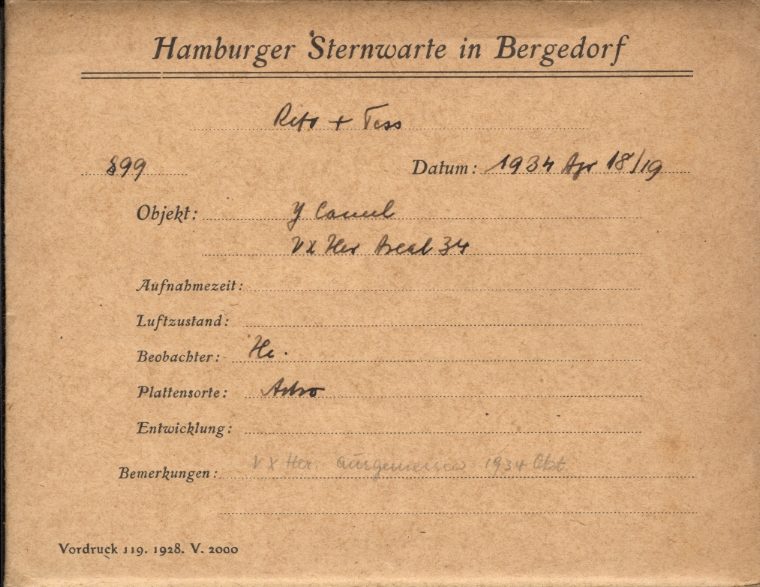 Hamburger Sternwarte in Bergedorf
+ Tess
899 Datum: 1934 Apr 18/19
Objekt: Y Camel
VX Her Areal 34
Aufnahmezeit:
Luftzustand:
Beobachter: He.
Plattensorte: Astro
Entwicklung:
Bemerkungen: VX Her. ausgemessen 1934 Okt.
Vordruck 119. 1928. V. 2000